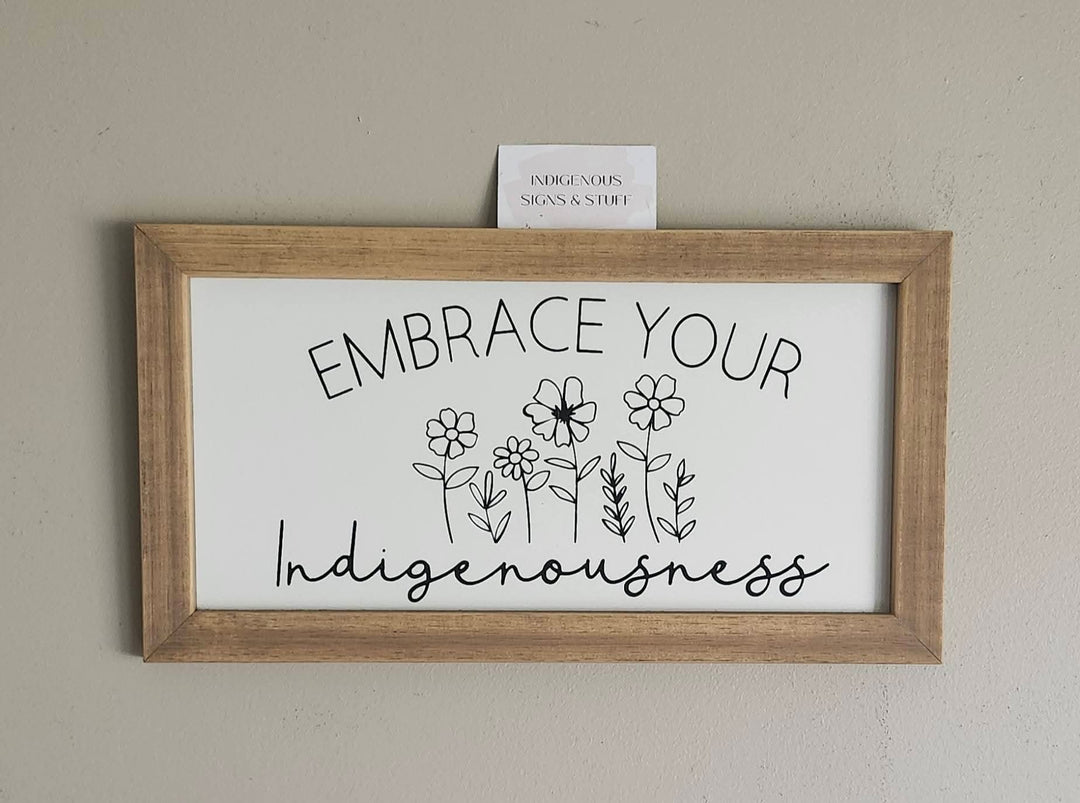 INDIGENOUS
SIGNS & STUFF
EMBRACE YOUR
Indigenousness